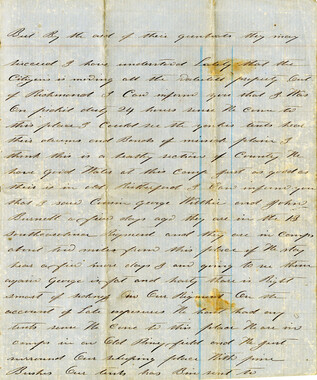 But By the aid of their gunboats they may
succeed I have understood Lately that the
Citizens is moving all the valuable property Out
of Richmond I Can inform you that I Was
On picket duty 24 hours since We Come to
this place I Could see the yankee tents hear
their drums and Bands of music plain I
think this is a healthy section of County We
have Good Water at this Camp Just as good as
this is in old Rutherford I Can inform you
that I seen Cousin George Wilkie and John
Burnett a few days ago they are in the 13
South carolina Regiment and they are in camps
about two miles from this place if We stay
here a few more days I am going to see them
again George is fat and harty there is Right
smart of sickness in Our Regiment On the
account of Late exposures We hant had any
tents since We Come to this place We are in
camps in an Old Piney field and We just
surround Our sleeping place With pine
Bushes Our tents has Bin sent to